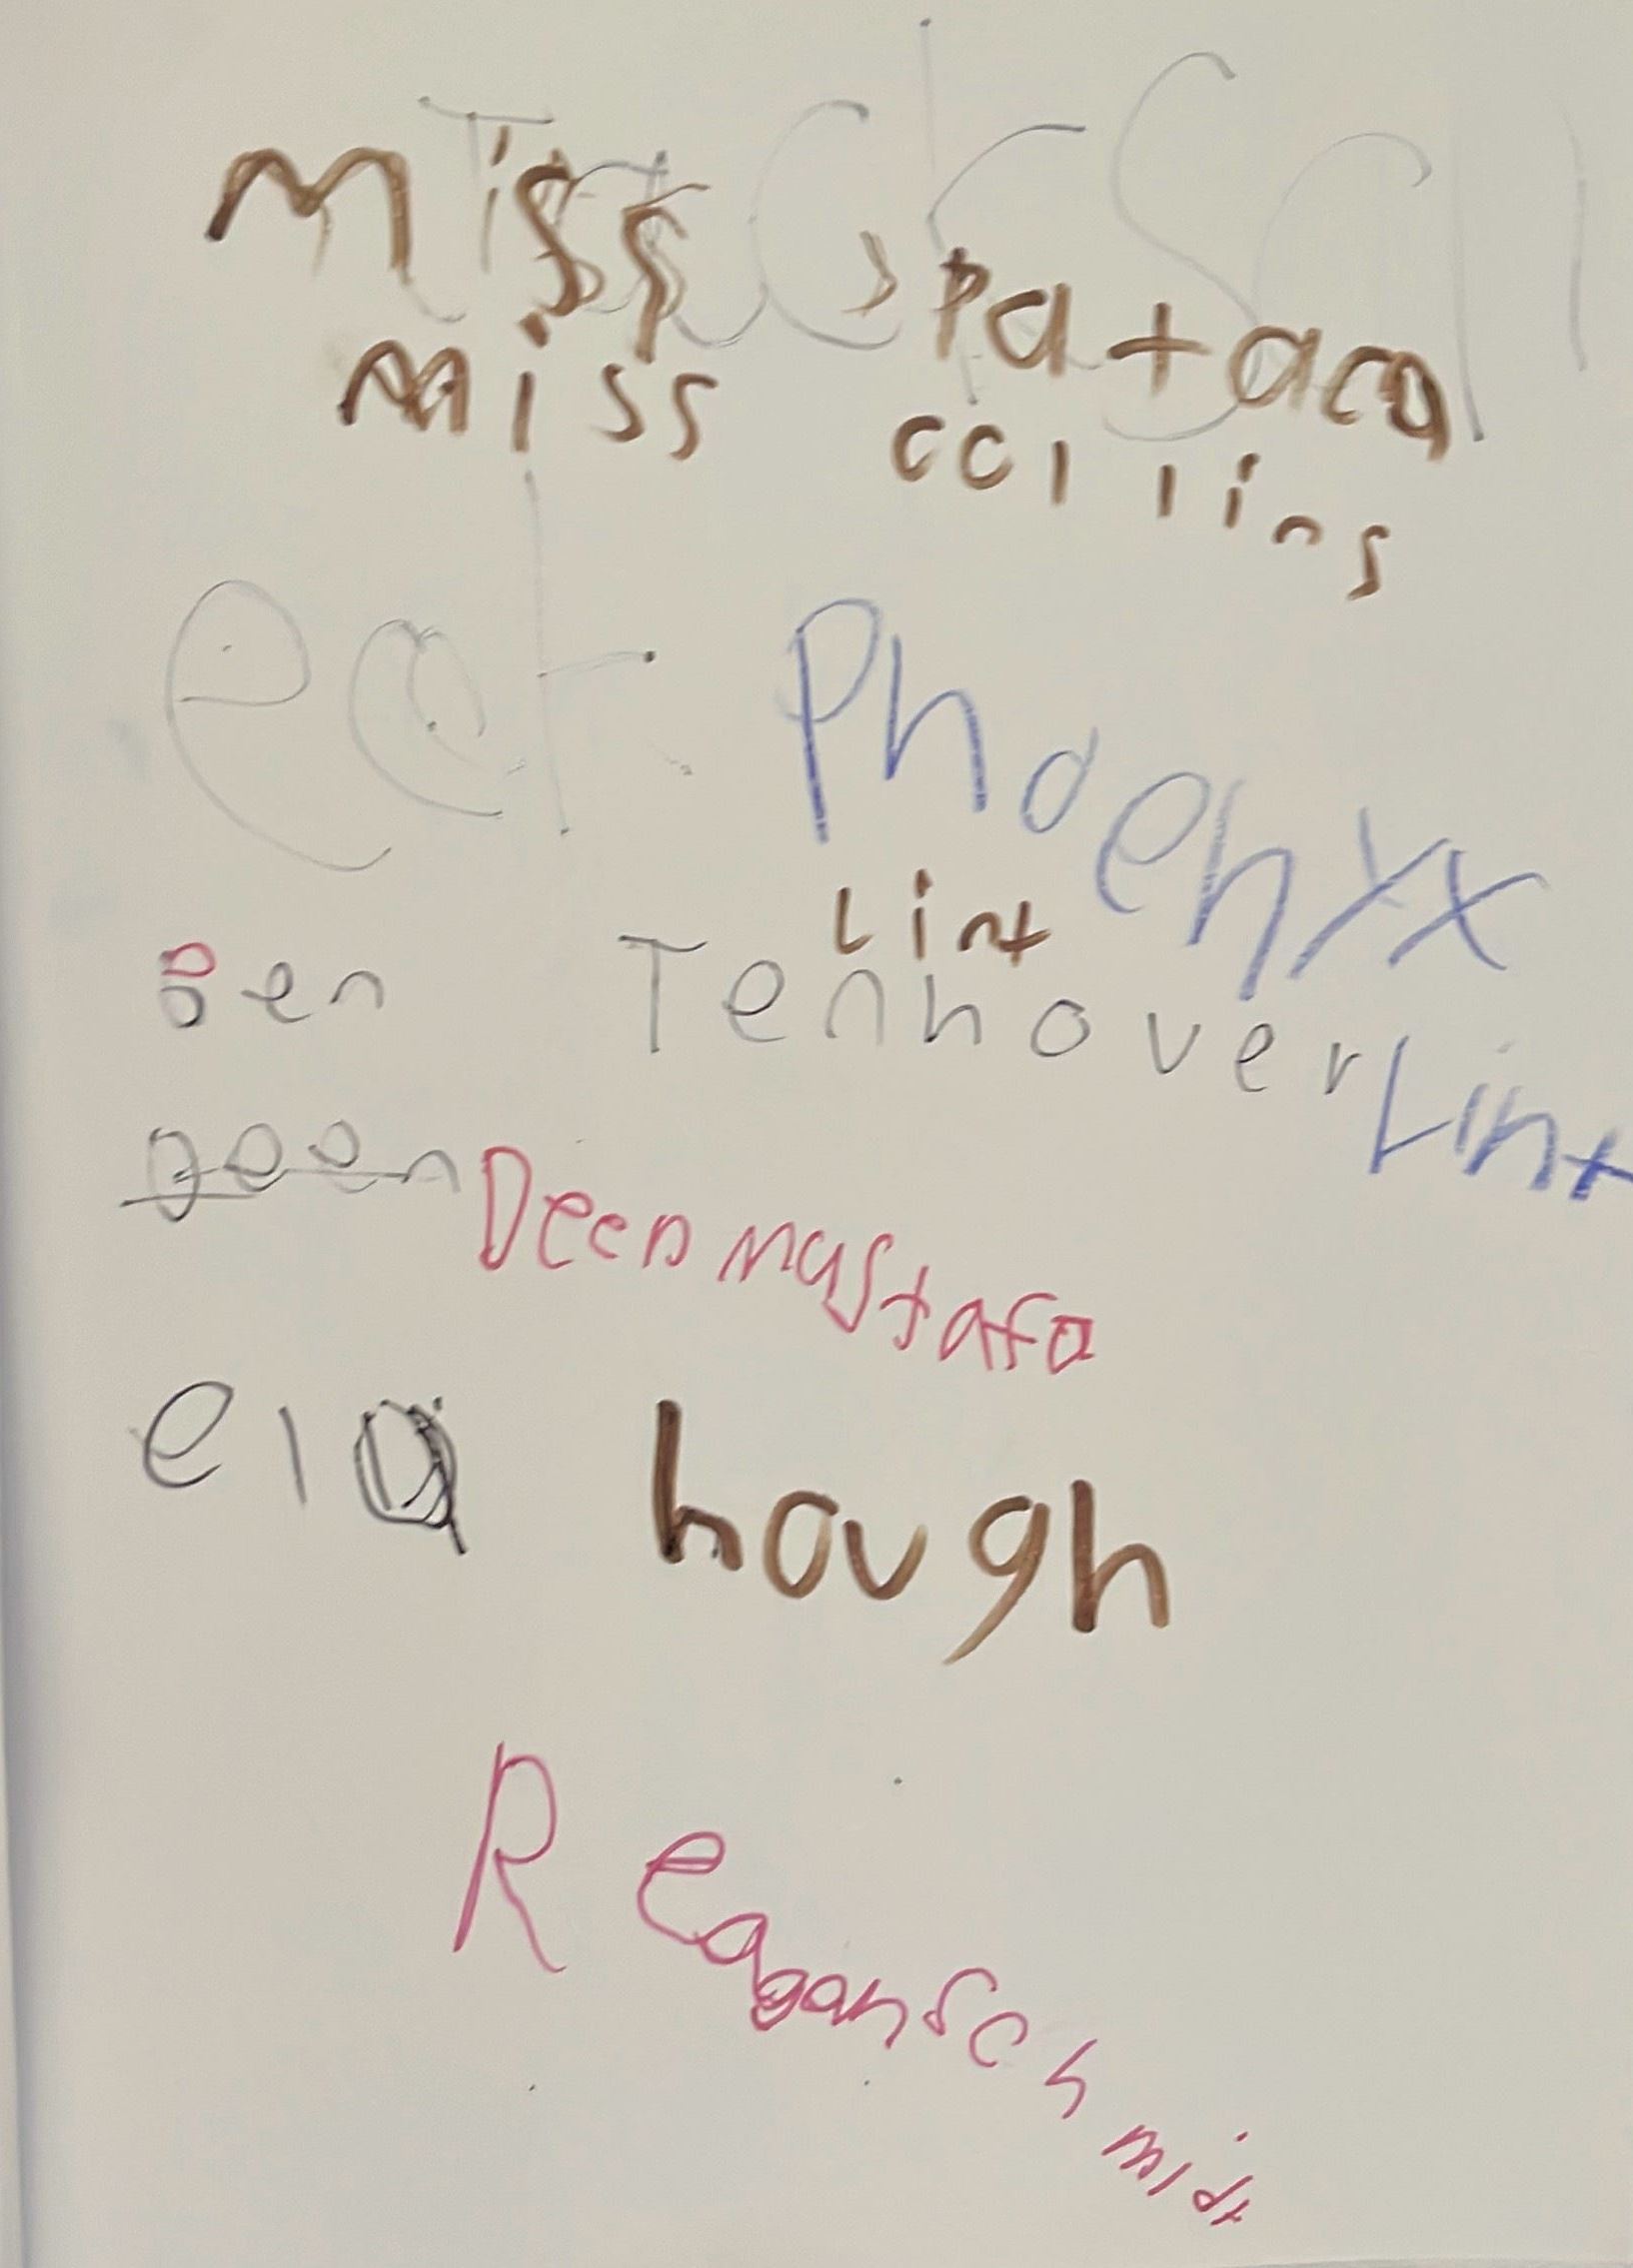 miss Pataca
miss ccllins
eat Phoenyx
Lint
Ben Tenhover Lint
Deen mustafa
ela hough
Reagan Schmidt